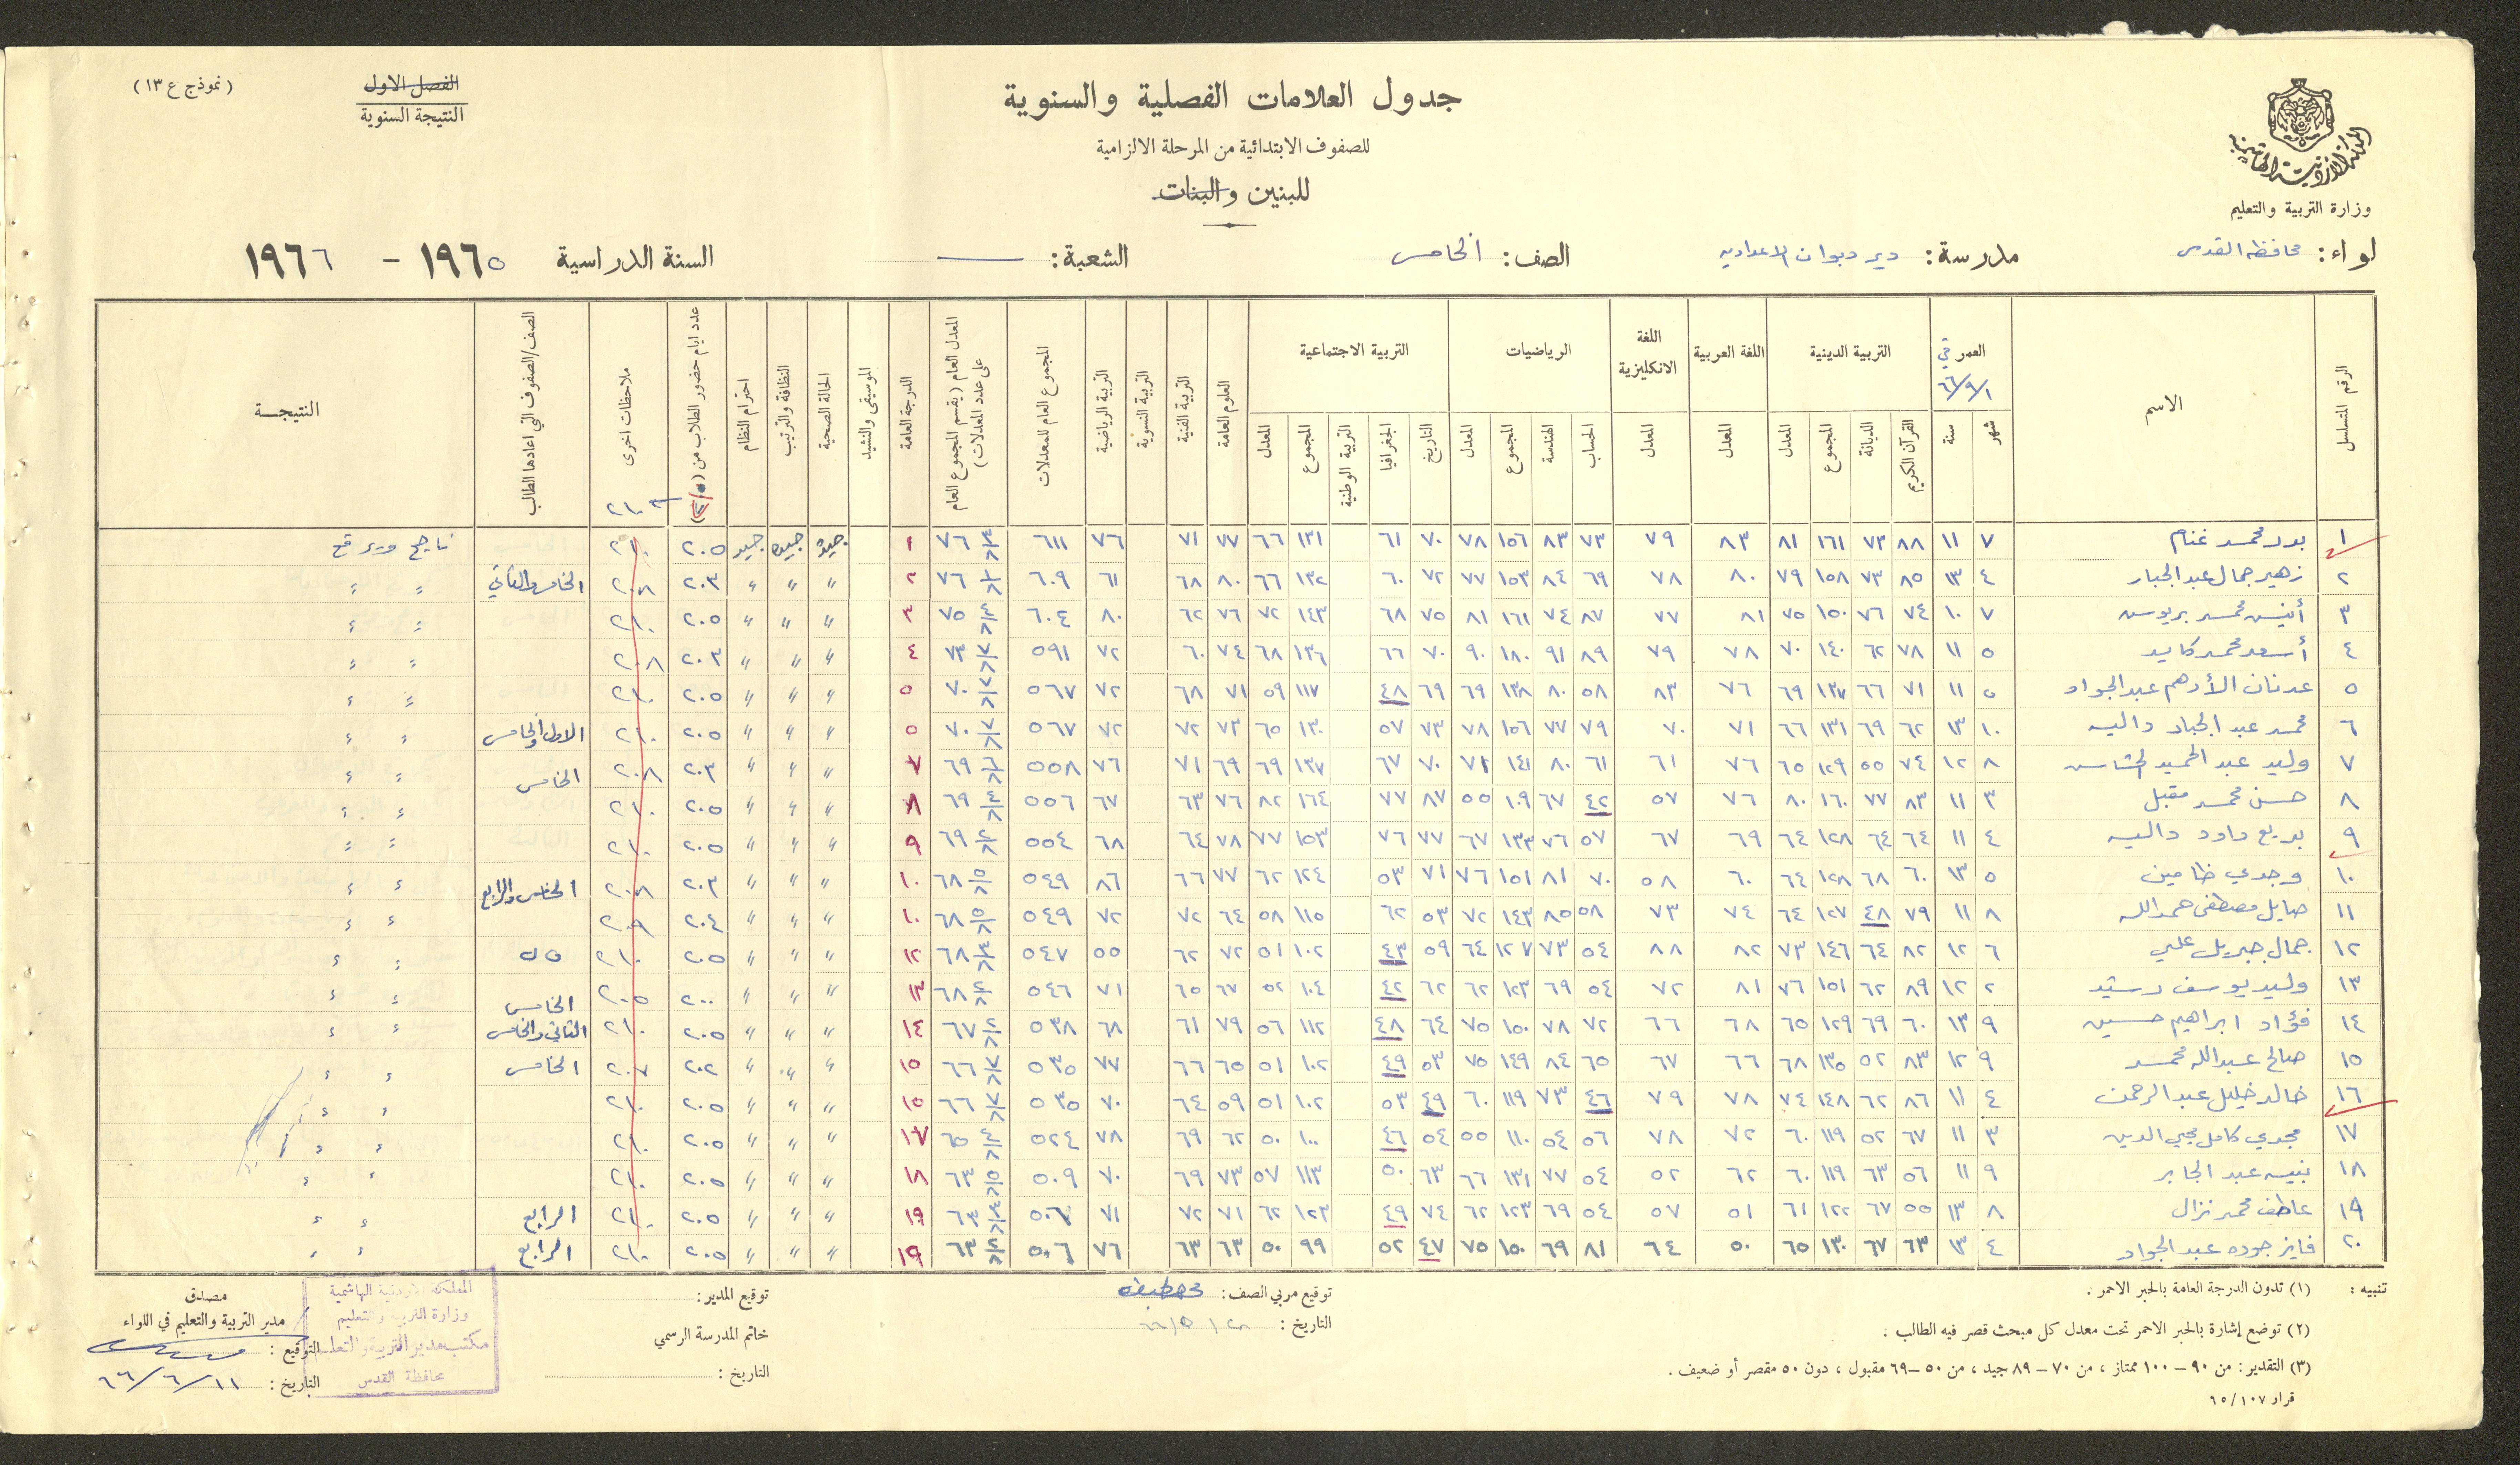 (نموذج ع ١٣)
الفصل الاول
النتيجة السنوية
جدول العلامات الفصلية والسنوية
للصفوف الابتدائية من المرحلة الالزامية
للبنين والبنات
المملكة الاردنية الهاشمية
وزارة التربية والتعليم
لواء: محافظة القدس مدرسة: دير دبوان الاعدادية الصف: الخامس الشعبة: — السنة الدراسية ١٩٦٥ - ١٩٦٦
الرقم المتسلسل الاسم العمر في ١/٩/٦٦ شهر سنة التربية الدينية القرآن الكريم الديانة المجموع المعدل اللغة العربية المعدل اللغة الانكليزية المعدل الرياضيات الحساب الهندسة المجموع المعدل التربية الاجتماعية التاريخ الجغرافيا التربية الوطنية المجموع المعدل العلوم العامة التربية الفنية التربية النسوية التربية الرياضية المجموع العام للمعدلات المعدل العام (يقسم المجموع العام على عدد المعدلات) الدرجة العامة الموسيقى والنشيد الحالة الصحية النظافة والترتيب احترام النظام عدد ايام حضور الطلاب من ملاحظات اخرى الصف/الصفوف التي اعادها الطالب النتيجــة
١ بدر محمد غنام ٧ ١١ ٨٨ ٧٣ ١٦١ ٨١ ٨٣ ٧٩ ٧٣ ٨٣ ١٥٦ ٧٨ ٧٠ ٦١ ١٣١ ٦٦ ٧٧ ٧١ ٧٦ ٦١١ ٧٦ ١ جيدة جيدة جيد ٢٠٥ ٢١٠ ناجح ويرفع
٢ زهير جمال عبد الجبار ٤ ١٣ ٨٥ ٧٣ ١٥٨ ٧٩ ٨٠ ٧٨ ٦٩ ٨٤ ١٥٣ ٧٧ ٧٢ ٦٠ ١٣٢ ٦٦ ٨٠ ٦٨ ٦١ ٦٠٩ ٧٦ ٢ " " " ٢٠٣ ٢٠٨ الخامس والثاني " "
٣ أنيس محمد بربوس ٧ ١٠ ٧٤ ٧٦ ١٥٠ ٧٥ ٨١ ٧٧ ٨٧ ٧٤ ١٦١ ٨١ ٧٥ ٦٨ ١٤٣ ٧٢ ٧٦ ٦٢ ٨٠ ٦٠٤ ٧٥ ٣ " " " ٢٠٥ ٢١٠ " "
٤ أسعد محمد كايد ٥ ١١ ٧٨ ٦٢ ١٤٠ ٧٠ ٧٨ ٧٩ ٨٩ ٩١ ١٨٠ ٩٠ ٧٠ ٦٦ ١٣٦ ٦٨ ٧٤ ٦٠ ٧٢ ٥٩١ ٧٣ ٤ " " " ٢٠٣ ٢٠٨ " "
٥ عدنان الأدهم عبد الجواد ٥ ١١ ٧١ ٦٦ ١٣٧ ٦٩ ٧٦ ٨٣ ٥٨ ٨٠ ١٣٨ ٦٩ ٦٩ ٤٨ ١١٧ ٥٩ ٧١ ٦٨ ٧٢ ٥٦٧ ٧٠ ٥ " " " ٢٠٥ ٢١٠ " "
٦ محمد عبد الجباد داليه ١٠ ١٣ ٦٢ ٦٩ ١٣١ ٦٦ ٧١ ٧٠ ٧٩ ٧٧ ١٥٦ ٧٨ ٧٣ ٥٧ ١٣٠ ٦٥ ٧٣ ٧٢ ٧٢ ٥٦٧ ٧٠ ٥ " " " ٢٠٥ ٢١٠ الاول والخامس " "
٧ وليد عبد الحميد ٨ ١٢ ٧٤ ٥٥ ١٢٩ ٦٥ ٧٦ ٦١ ٦١ ٨٠ ١٤١ ٧١ ٧٠ ٦٧ ١٣٧ ٦٩ ٦٩ ٧١ ٧٦ ٥٥٨ ٦٩ ٧ " " " ٢٠٣ ٢٠٨ الخامس " "
٨ حسن محمد مقبل ٣ ١١ ٨٣ ٧٧ ١٦٠ ٨٠ ٧٦ ٥٧ ٤٢ ٦٧ ١٠٩ ٥٥ ٨٧ ٧٧ ١٦٤ ٨٢ ٧٦ ٦٣ ٦٧ ٥٥٦ ٦٩ ٨ " " " ٢٠٥ ٢١٠ " "
٩ بديع داود داليه ٤ ١١ ٦٤ ٦٤ ١٢٨ ٦٤ ٦٩ ٦٧ ٥٧ ٧٦ ١٣٣ ٦٧ ٧٧ ٧٦ ١٥٣ ٧٧ ٧٨ ٦٤ ٦٨ ٥٥٤ ٦٩ ٩ " " " ٢٠٥ ٢١٠ " "
١٠ وجدي ضامين ٥ ١٣ ٦٠ ٦٨ ١٢٨ ٦٤ ٦٠ ٥٨ ٧٠ ٨١ ١٥١ ٧٦ ٧١ ٥٣ ١٢٤ ٦٢ ٧٧ ٦٦ ٨٦ ٥٤٩ ٦٨ ١٠ " " " ٢٠٣ ٢٠٨ الخامس والرابع " "
١١ صايل مصطفى حمدالله ٨ ١١ ٧٩ ٤٨ ١٢٧ ٦٤ ٧٤ ٧٣ ٥٨ ٨٥ ١٤٣ ٧٢ ٥٣ ٦٢ ١١٥ ٥٨ ٦٤ ٧٢ ٧٢ ٥٤٩ ٦٨ ١٠ " " " ٢٠٤ ٢٠٩ " "
١٢ جمال جبريل علي ٦ ١٢ ٨٢ ٦٤ ١٤٦ ٧٣ ٨٢ ٨٨ ٥٤ ٧٣ ١٢٧ ٦٤ ٥٩ ٤٣ ١٠٢ ٥١ ٧٢ ٦٢ ٥٥ ٥٤٧ ٦٨ ١٢ " " " ٢٠٥ ٢١٠ " "
١٣ وليد يوسف رشيد ٢ ١٢ ٨٩ ٦٢ ١٥١ ٧٦ ٨١ ٧٢ ٥٤ ٦٩ ١٢٣ ٦٢ ٦٢ ٤٢ ١٠٤ ٥٢ ٦٧ ٦٥ ٧١ ٥٤٦ ٦٨ ١٣ " " " ٢٠٠ ٢٠٥ الخامس " "
١٤ فؤاد ابراهيم حسين ٩ ١٣ ٦٠ ٦٩ ١٢٩ ٦٥ ٦٨ ٦٦ ٧٢ ٧٨ ١٥٠ ٧٥ ٦٤ ٤٨ ١١٢ ٥٦ ٧٩ ٦١ ٦٨ ٥٣٨ ٦٧ ١٤ " " " ٢٠٥ ٢١٠ الثاني والخامس " "
١٥ صالح عبدالله محمد ٩ ١٢ ٨٣ ٥٢ ١٣٥ ٦٨ ٦٦ ٦٧ ٦٥ ٨٤ ١٤٩ ٧٥ ٥٣ ٤٩ ١٠٢ ٥١ ٦٥ ٦٦ ٧٧ ٥٣٥ ٦٦ ١٥ " " " ٢٠٢ ٢٠٧ الخامس " "
١٦ خالد خليل عبد الرحمن ٤ ١١ ٨٦ ٦٢ ١٤٨ ٧٤ ٧٨ ٧٩ ٤٦ ٧٣ ١١٩ ٦٠ ٤٩ ٥٣ ١٠٢ ٥١ ٥٩ ٦٤ ٧٠ ٥٣٥ ٦٦ ١٥ " " " ٢٠٥ ٢١٠ " "
١٧ مجدي كامل محي الدين ٣ ١١ ٦٧ ٥٢ ١١٩ ٦٠ ٧٢ ٧٨ ٥٦ ٥٤ ١١٠ ٥٥ ٥٤ ٤٦ ١٠٠ ٥٠ ٦٢ ٦٩ ٧٨ ٥٢٤ ٦٥ ١٧ " " " ٢٠٥ ٢١٠ " "
١٨ نبيه عبد الجابر ٩ ١١ ٥٦ ٦٣ ١١٩ ٦٠ ٦٢ ٥٢ ٥٤ ٧٧ ١٣١ ٦٦ ٦٣ ٥٠ ١١٣ ٥٧ ٧٣ ٦٩ ٧٠ ٥٠٩ ٦٣ ١٨ " " " ٢٠٥ ٢١٠ " "
١٩ عاطف محمد نزال ٨ ١٣ ٥٥ ٦٧ ١٢٢ ٦١ ٥١ ٥٧ ٥٤ ٦٩ ١٢٣ ٦٢ ٧٤ ٤٩ ١٢٣ ٦٢ ٧١ ٧٢ ٧١ ٥٠٦ ٦٣ ١٩ " " " ٢٠٥ ٢١٠ الرابع " "
٢٠ فايز جوده عبد الجواد ٤ ١٣ ٦٣ ٦٧ ١٣٠ ٦٥ ٥٠ ٦٤ ٨١ ٦٩ ١٥٠ ٧٥ ٤٧ ٥٢ ٩٩ ٥٠ ٦٣ ٦٣ ٧٦ ٥٠٦ ٦٣ ١٩ " " " ٢٠٥ ٢١٠ الرابع " "
تنبيه: (١) تدون الدرجة العامة بالحبر الاحمر.
(٢) توضع إشارة بالحبر الاحمر تحت معدل كل مبحث قصر فيه الطالب.
(٣) التقدير: من ٩٠ – ١٠٠ ممتاز، من ٧٠ – ٨٩ جيد، من ٥٠ – ٦٩ مقبول، دون ٥٠ مقصر أو ضعيف.
قرار ١٠٧/٦٥
توقيع مربي الصف:
التاريخ: ٢٨/٥/٦٦
توقيع المدير:
خاتم المدرسة الرسمي
التاريخ:
مصدق
مدير التربية والتعليم في اللواء
التوقيع:
التاريخ: ١١/٦/٦٦
المملكة الاردنية الهاشمية
وزارة التربية والتعليم
مكتب مدير التربية والتعليم
محافظة القدس